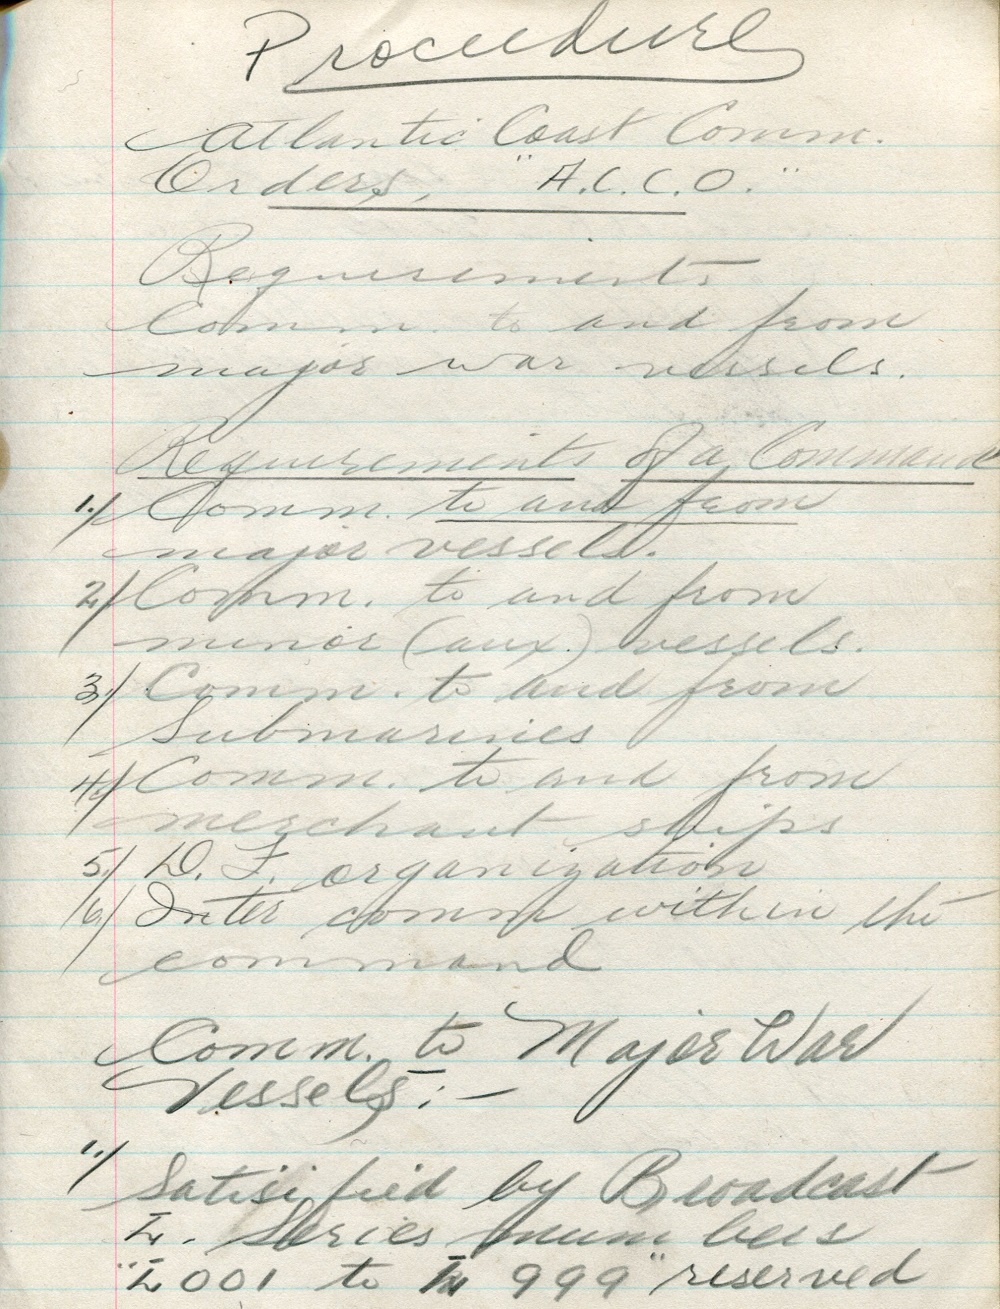 Procedure
Atlantic Coast Comm.
Orders, "A.C.C.O."
Requirements
Comm. to and from
major war vessels.
Requirements of a Command
1./ Comm. to and from
major vessels.
2/ Comm. to and from
minor (aux.) vessels.
3/ Comm. to and from
Submarines
4/ Comm. to and from
merchant ships
5/ D.F. organization
6/ Inter comm within the
command
Comm. to Major War
Vessels:-
1./
Satisified by Broadcast
I. Series numbers
"I001 to I 999" reserved